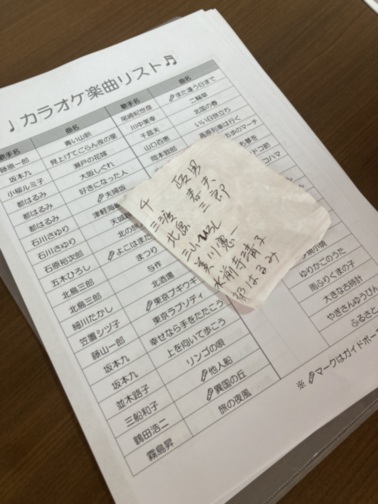 ♩カラオケ楽曲リスト♬
歌手名 曲名 歌手名 曲名
藤原一郎 青い山脈 尾崎紀世彦 また逢う日まで
坂本九 見上げてごらん夜の星 川中美幸 二輪草
小柳ルミ子 瀬戸の花嫁 千昌夫 北国の春
都はるみ 大阪しぐれ 山口百恵 いい日旅立ち
都はるみ 好きになった人 岡本敦郎 高原列車は行く
石川さゆり 津軽海
石川さゆり 天城
石原裕次郎
五木ひろし よこはま
北島三郎 まつり
北島三郎 与作
細川たかし 北酒場
笠置シヅ子 東京ブギウギ
藤山一郎 東京ラプソディ
坂本九 幸せなら手をたたこう
坂本九 上を向いて歩こう
並木路子 リンゴの唄
三船和子 他人船
鶴田浩二 異国の丘
霧島昇 旅の夜風
三波 春夫
北島 三郎
美川憲一
水前寺清子
都はるみ
ゆりかごのうた
雨ふりくまの子
大きな古時計
やぎさんゆうびん
ふるさと
※ マークはガイドボー